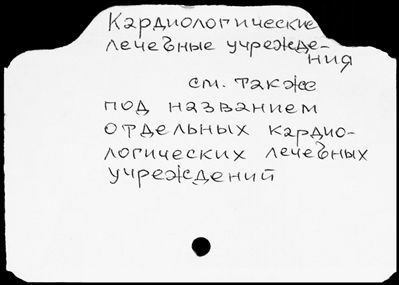 Кардиологические
лечебные учрежде-
ния
см. также
под названием
отдельных кардио-
логических лечебных
учреждений